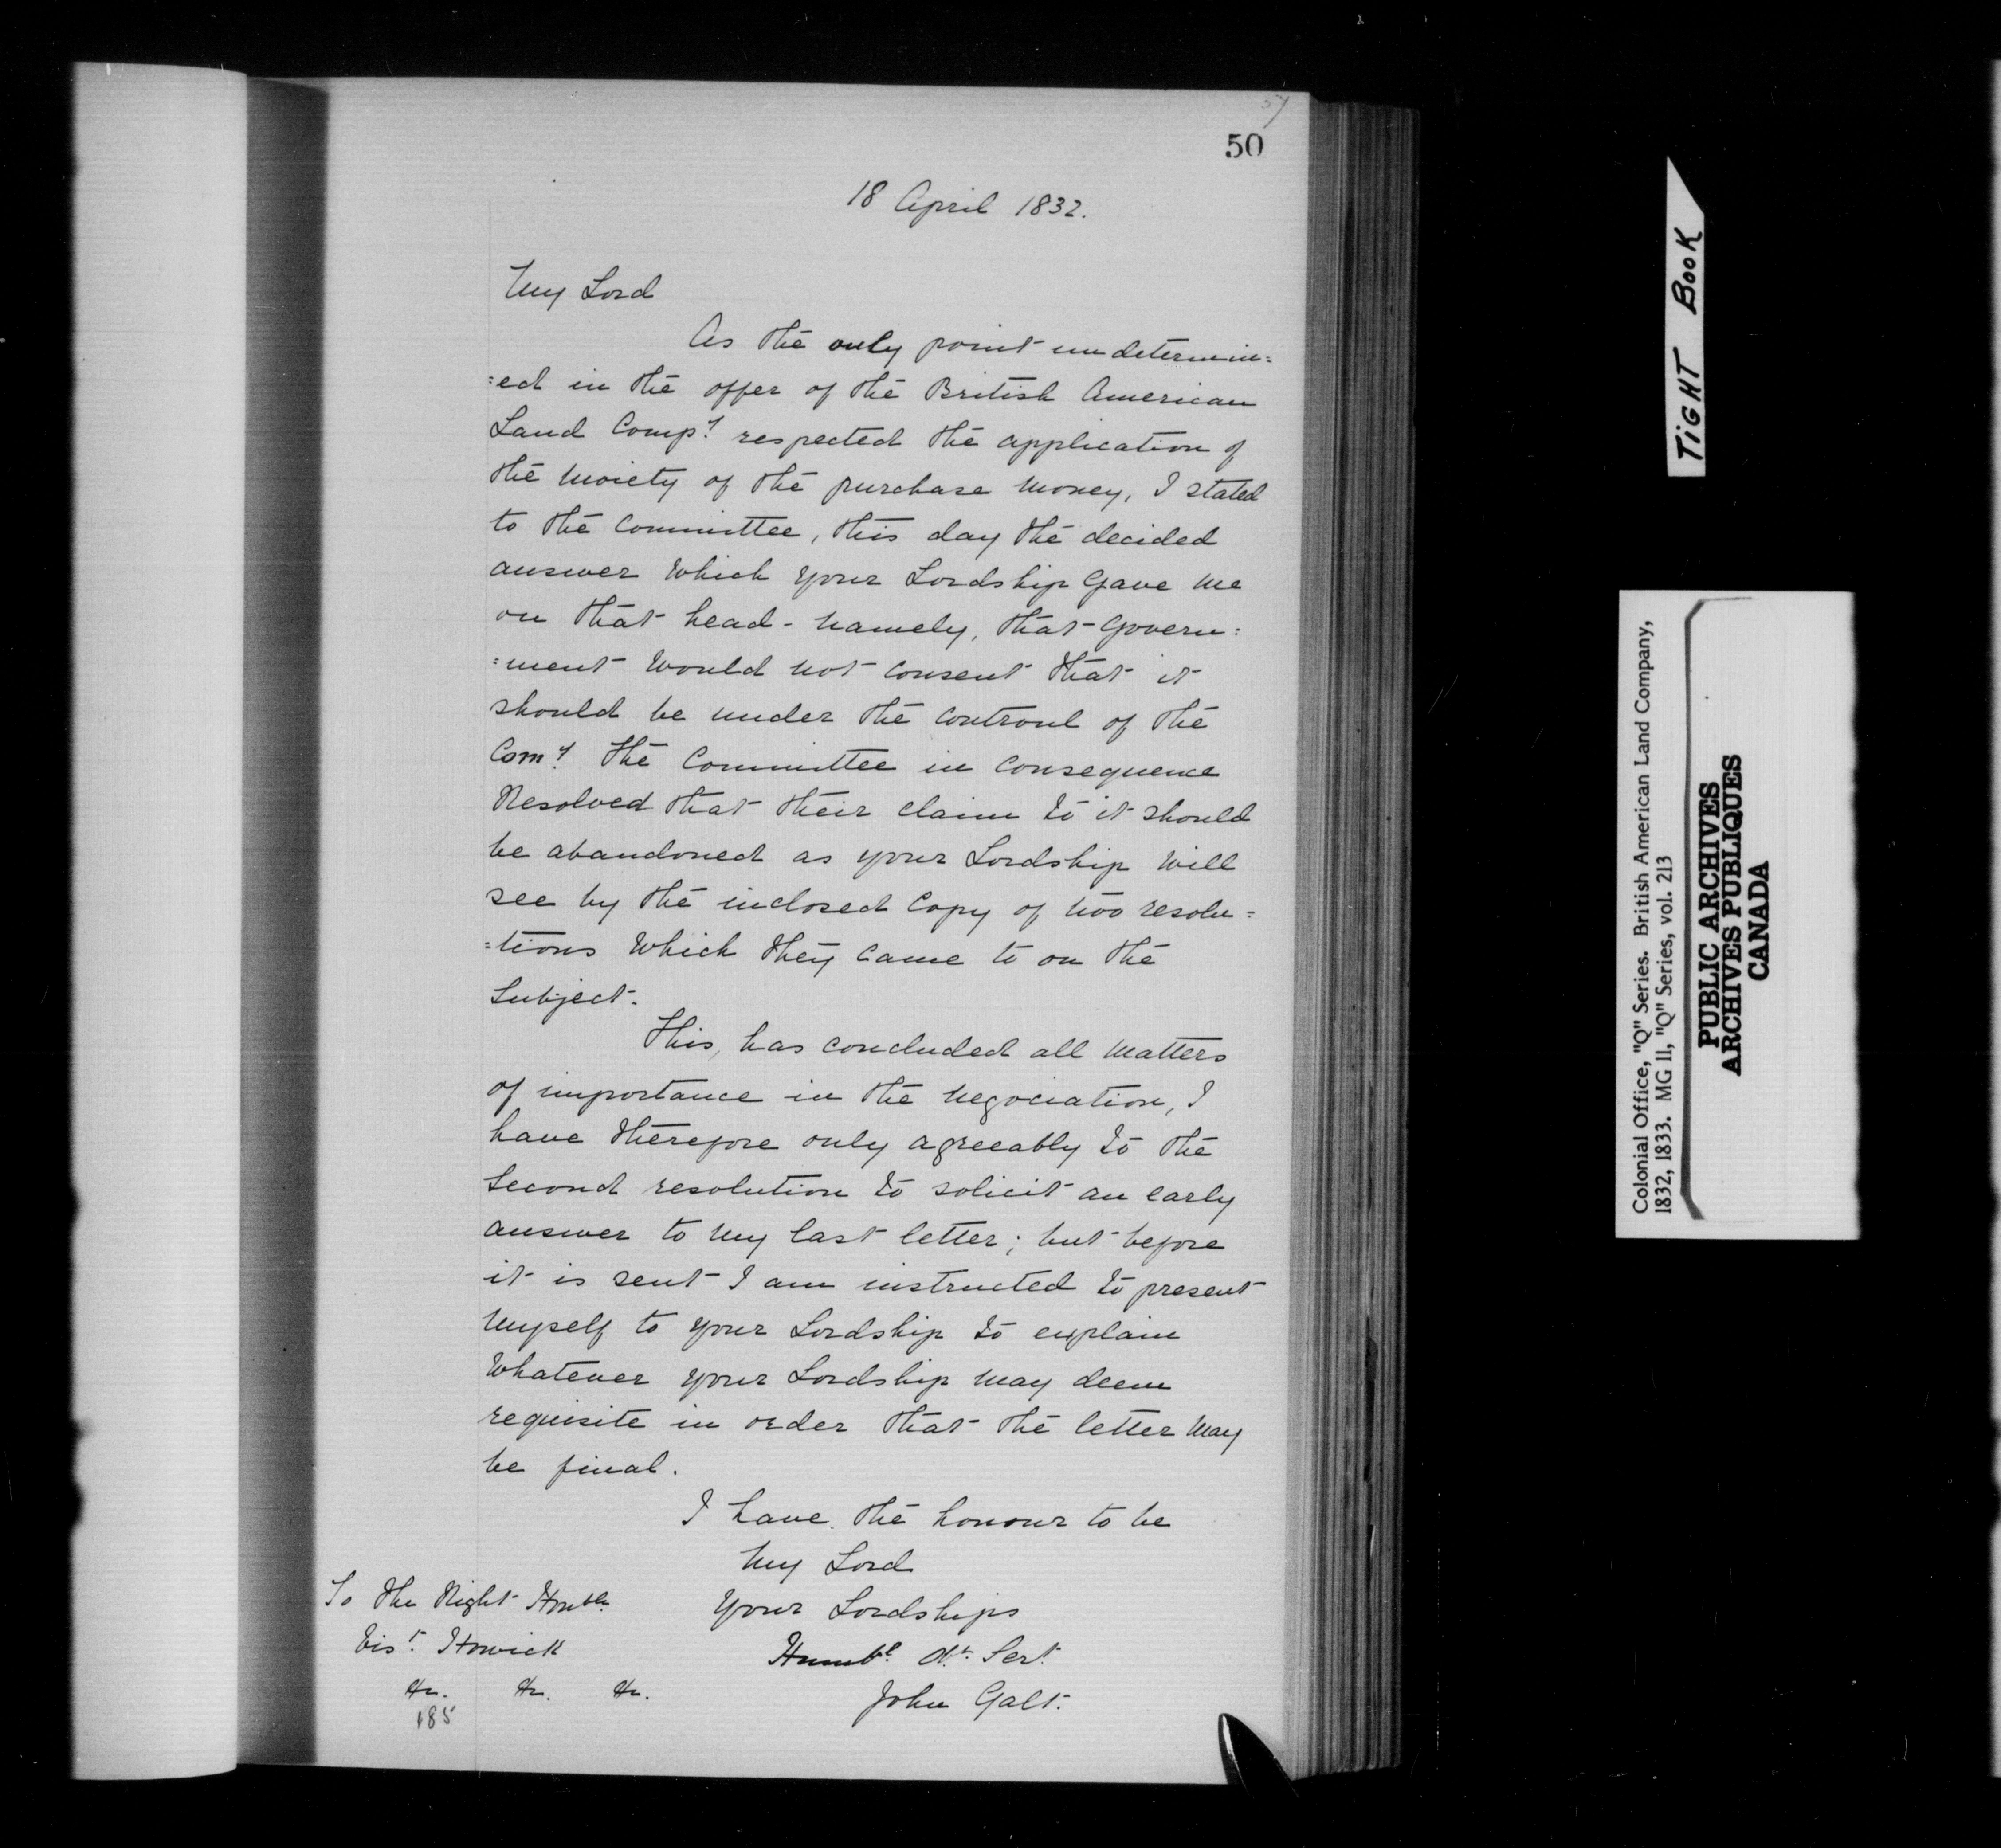 57
50
18 April 1832.
My Lord
As the only point undetermin=
=ed in the offer of the British American
Land Compy. respected the application of
the Moiety of the purchase Money, I stated
to the Committee, this day the decided
answer Which your Lordship Gave Me
on that head - Namely, that Govern=
=ment Would not consent that it
should be under the Controul of the
Comy. The Committee in Consequence
Resolved that their claim to it should
be abandoned as your Lordship Will
see by the inclosed Copy of two resolu=
=tions Which they Came to on the
Subject.
This, has concluded all Matters
of importance in the Negociation, I
have therefore only agreeably to the
Second resolution to solicit an early
answer to My last letter; but before
it is sent I am instructed to present
Myself to your Lordship to explain
Whatever your Lordship May deem
requisite in order that the letter May
be final.
I have the honour to be
My Lord
Your Lordships
Humbe. Ot. Sert.
John Galt.
To The Right Honble.
Vist. Howick
&c. &c. &c.
185
TIGHT BOOK
Colonial Office, "Q" Series. British American Land Company,
1832, 1833. MG 11, "Q" Series, vol. 213
PUBLIC ARCHIVES
ARCHIVES PUBLIQUES
CANADA